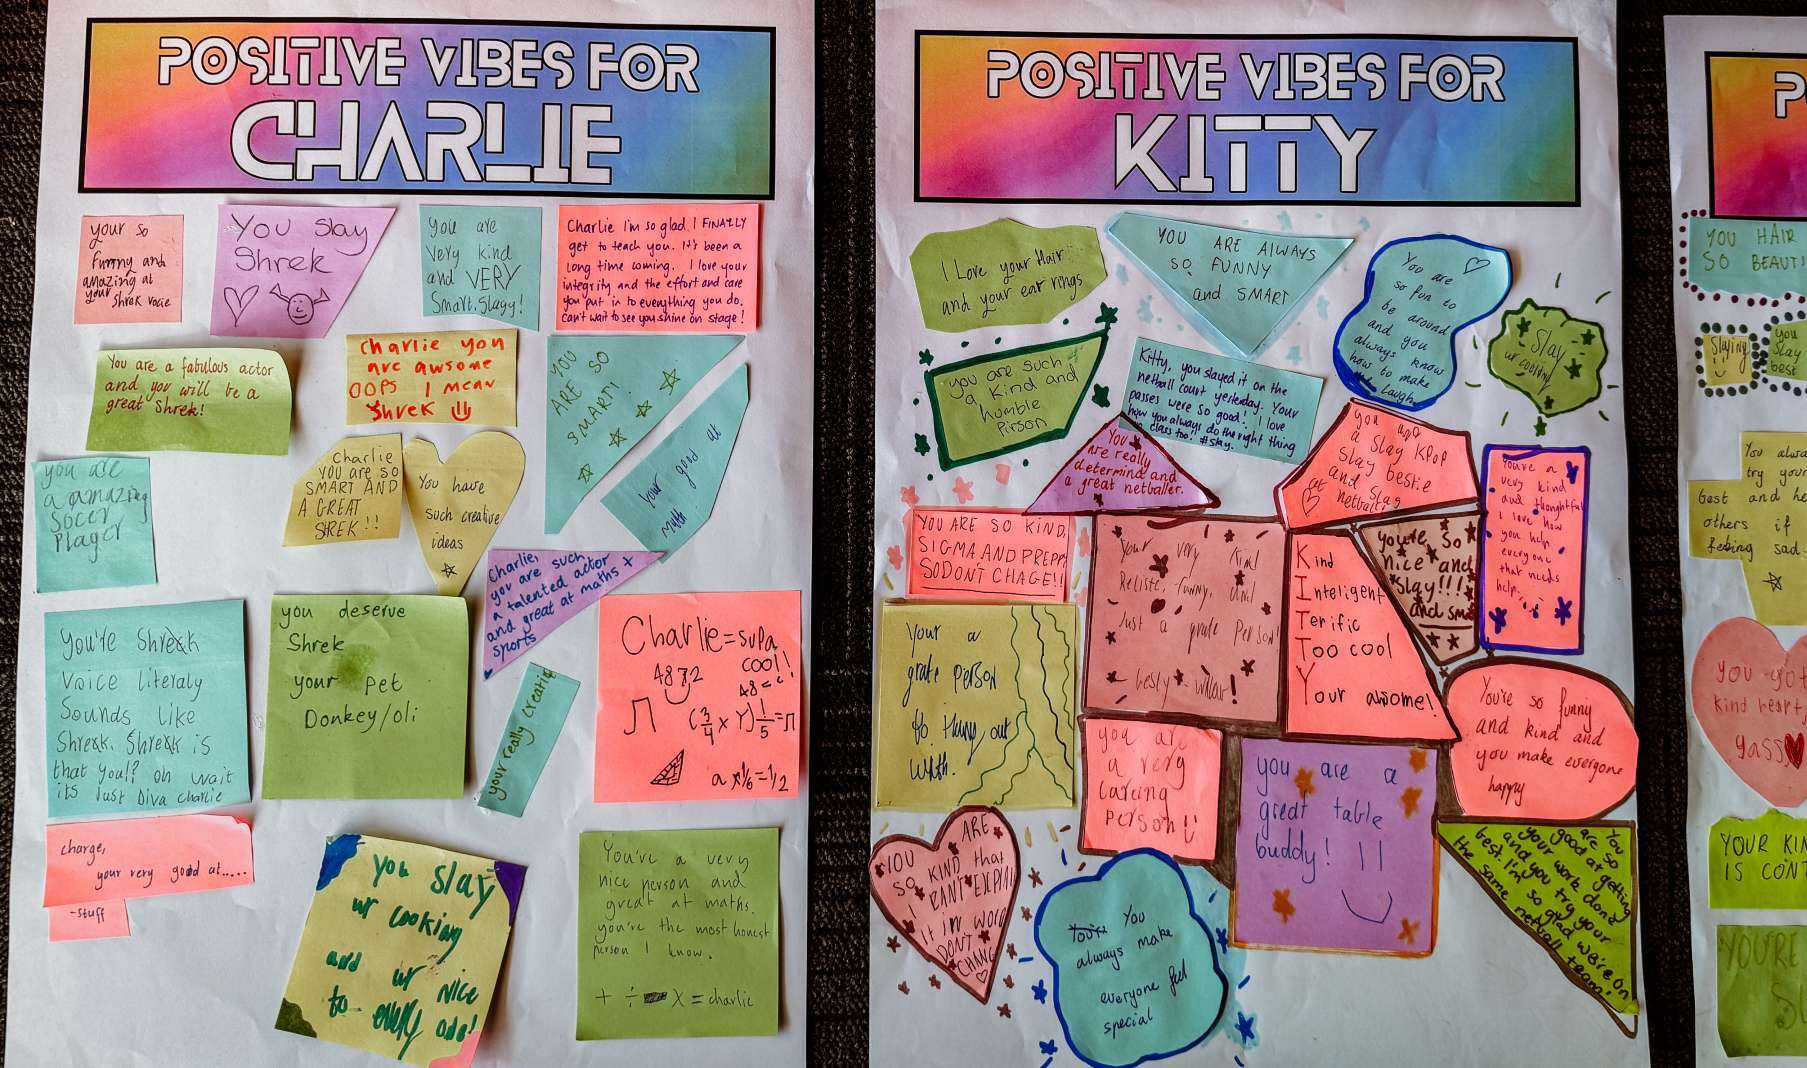 POSITIVE VIBES FOR
CHARLIE
your so
funny and
amazing at
your shrek voice
You Slay
Shrek
you are
very kind
and VERY
Smart. Slayy!
Charlie I'm so glad I FINALLY
get to teach you. It's been a
long time coming. I love your
integrity and the effort and care
you put in to everything you do.
Can't wait to see you shine on stage!
You are a fabulous actor
and you will be a
great Shrek!
Charlie you
are awsome
OOPS I mean
Shrek
YOU
ARE SO
SMART!
your good at
math
you are
a amazing
Socer
Player
Charlie
YOU ARE SO
SMART AND
A GREAT
SHREK!!
You have
such creative
ideas
Charlie,
you are such
a talented actor
and great at maths +
sports
You're Shrek
Voice literaly
Sounds like
Shrek. Shrek is
that you!? oh wait
its Just Diva charlie
you deserve
Shrek
your pet
Donkey/oli
your really creative
Charlie = supa
cool!!
4872
(3/4 x Y) 1/5 = Π
a x 1/6 = 1/2
charge,
your very good at.....
-stuff
you slay
ur cooking
and ur nice
to every one!
You're a very
nice person and
great at maths.
you're the most honest
person I know.
+ ÷ - X = charlie
POSITIVE VIBES FOR
KITTY
I Love your Hair
and your ear rings
YOU ARE ALWAYS
SO FUNNY
and SMART
You are
so fun to
be around
and you
always know
how to make
me laugh
Slay
ur cooking
you are such
a kind and
humble
Pirson
Kitty, you slayed it on the
netball court yesterday. Your
passes were so good! I love
how you always do the right thing
in class too! #slay.
You
are really
determind and
a great netballer.
you are
a slay KPOP
slay bestie
and slay
at netball
You're a
very kind
and thoughtful
I love how
you help
everyone
that needs
help...
YOU ARE SO KIND,
SIGMA AND PREPPY
SO DONT CHAGE!!
Your very kind
Reliste, funny, and
Just a grate Person!
Kind
Inteligent
Terific
Too cool
Your awsome!
you're so
nice and
Slay!!!
and smart
Your a
grate person
to Hang out
With.
you are
a very
careing
person
you are a
great table
buddy! !!
You're so funny
and kind and
you make everyone
happy
You are so
good at getting
your work done
and you try your
best. I'm so glad we're on
the same netball team!
YOU ARE
SO KIND that
I CANT EXPLAIN
it in WORDS
DONT
CHANGE
You
always make
everyone feel
special
P
YOU HAIR
SO BEAUTI
Slaying
you
Slay
best
You alwa
try your
best and he
others if
feeling sad
you got
kind heart,
yass
YOUR KIN
IS CONT
YOU'RE